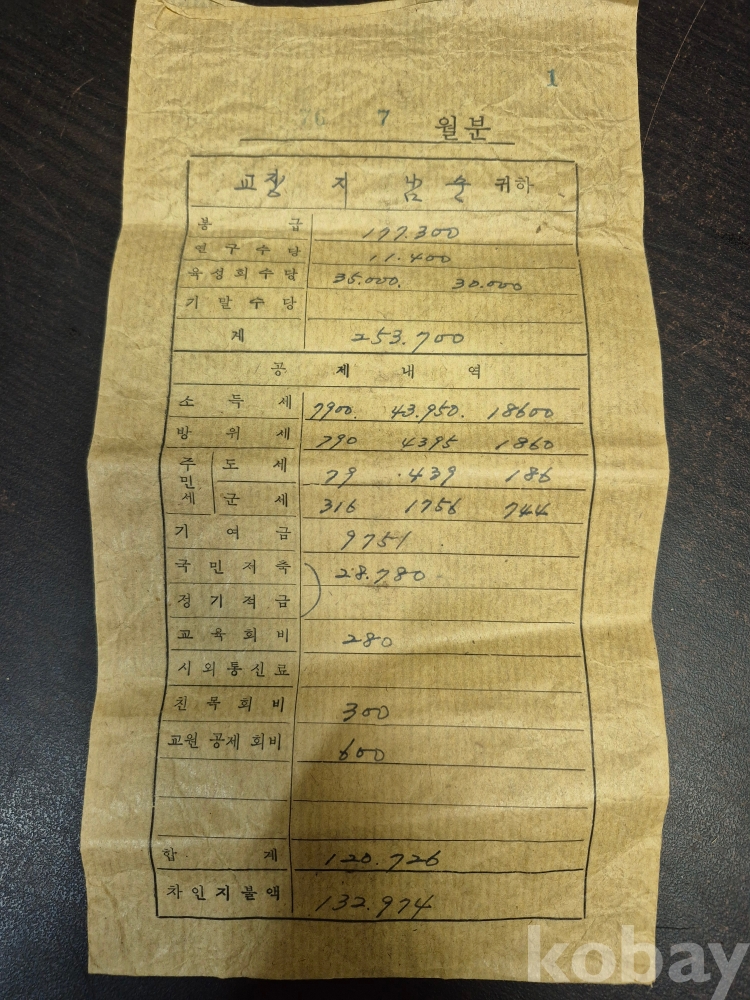 1
76 7 월분
교장 지 남 순 귀하
봉급 177.300
연구수당 11.400
육성회수당 35.000. 30.000
기말수당
계 253.700
공제내역
소득세 7900. 43.950. 18600
방위세 790 4395 1860
주민세 도세 79 439 186
군세 316 1756 744
기여금 9751
국민저축 28.780
정기적금
교육회비 280
시외통신료
친목회비 300
교원공제회비 600
합계 120.726
차인지불액 132.974
kobay